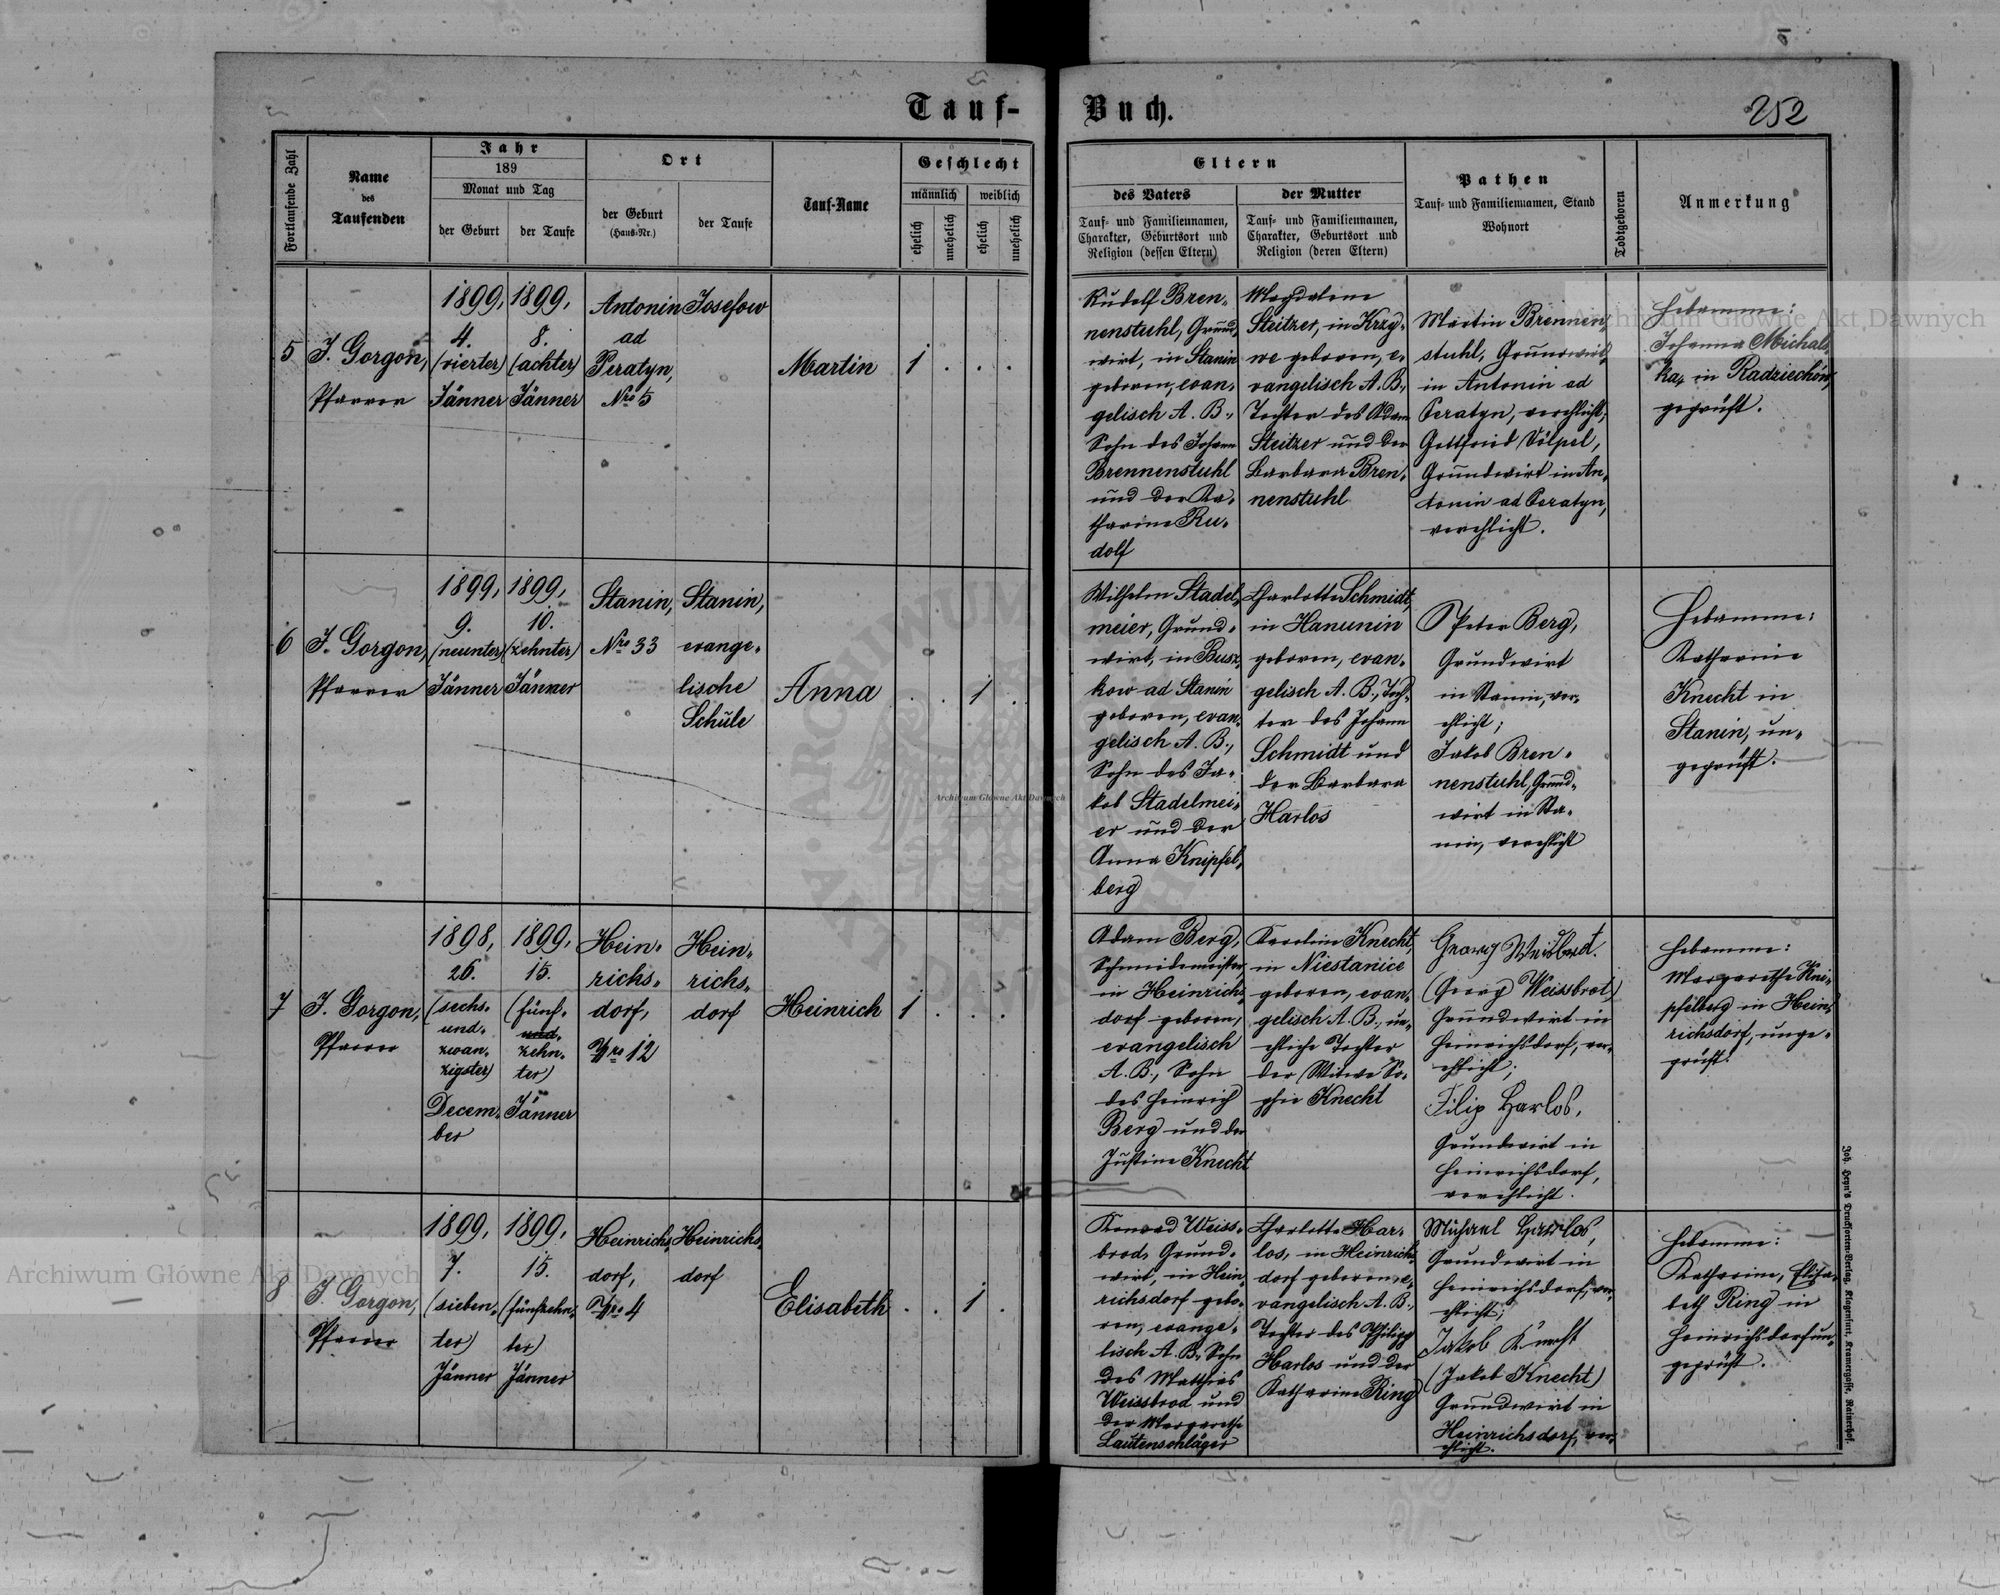 Tauf-
Buch.
252
Fortlaufende Zahl
Name
des
Taufenden
Jahr
189
Monat und Tag
der Geburt
der Taufe
Ort
der Geburt
(Haus-Nr.)
der Taufe
Tauf-Name
Geschlecht
männlich
weiblich
ehelich
unehelich
ehelich
unehelich
Eltern
des Vaters
Tauf- und Familiennamen,
Charakter, Geburtsort und
Religion (dessen Eltern)
der Mutter
Tauf- und Familiennamen,
Charakter, Geburtsort und
Religion (deren Eltern)
Pathen
Tauf- und Familiennamen, Stand
Wohnort
Todtgeboren
Anmerkung
5
J. Gorgon,
Pfarrer
1899,
4.
(vierter)
Jänner
1899,
8.
(achter)
Jänner
Antonin
ad
Peratyn,
Nro 5
Josefow
Martin
1 . . .
Rudolf Bren-
nenstuhl, Grund-
wirt, in Stanin
geboren, evan-
gelisch A. B.,
Sohn des Johann
Brennenstuhl
und der Ka-
tharine Ru-
dolf
Magdalene
Steitzer, in Krzy-
we geboren, e-
vangelisch A. B.,
Tochter des Adam
Steitzer und der
Barbara Bren-
nenstuhl
Martin Brennen-
stuhl, Grundwirt
in Antonin ad
Peratyn, verehlicht;
Gottfried Völpel,
Grundwirt in An-
tonin ad Peratyn,
verehlicht.
Hebamme:
Johanna Michals-
ka, in Radziechów,
geprüft.
6
J. Gorgon,
Pfarrer
1899,
9.
(neunter)
Jänner
1899,
10.
(zehnter)
Jänner
Stanin,
Nro 33
Stanin,
evange-
lische
Schule
Anna
. . 1 .
Wilhelm Stadel-
meier, Grund-
wirt, in Busz-
kow ad Stanin
geboren, evan-
gelisch A. B.,
Sohn des Ja-
kob Stadelmei-
er und der
Anna Knipfel-
berg
Charlotte Schmidt,
in Hanunin
geboren, evan-
gelisch A. B., Toch-
ter des Johann
Schmidt und
der Barbara
Harlos
Peter Berg,
Grundwirt
in Stanin, ver-
ehlicht;
Jakob Bren-
nenstuhl, Grund-
wirt in Sta-
nin, verehlicht
Hebamme:
Katharine
Knecht in
Stanin, un-
geprüft.
7
J. Gorgon,
Pfarrer
1898,
26.
(sechs-
und-
zwan-
zigster)
Decem-
ber
1899,
15.
(fünf-
und-
zehn-
ter)
Jänner
Hein-
richs-
dorf,
Nro 12
Hein-
richs-
dorf
Heinrich
1 . . .
Adam Berg,
Schmiedemeister,
in Heinrichs-
dorf geboren,
evangelisch
A. B., Sohn
des Heinrich
Berg und der
Justine Knecht
Karoline Knecht,
in Niestanice
geboren, evan-
gelisch A. B., un-
ehliche Tochter
der Witwe So-
phie Knecht
Georg Weisbrot.
(Georg Weissbrot)
Grundwirt in
Heinrichsdorf, ver-
ehlicht;
Filip Harlos,
Grundwirt in
Heinrichsdorf,
verehlicht.
Hebamme:
Margarethe Kni-
pfelberg in Hein-
richsdorf, unge-
prüft.
8
J. Gorgon,
Pfarrer
1899,
7.
(sieben-
ter)
Jänner
1899,
15.
(fünfzehn-
ter)
Jänner
Heinrichs-
dorf,
Nro 4
Heinrichs-
dorf
Elisabeth
. . 1 .
Konrad Weiss-
brod, Grund-
wirt, in Hein-
richsdorf gebo-
ren, evange-
lisch A. B., Sohn
des Mathias
Weissbrod und
der Margarethe
Lautenschläger
Charlotte Har-
los, in Heinrichs-
dorf geboren, e-
vangelisch A. B.,
Tochter des Philipp
Harlos und der
Katharine Ring
Michael Harlos,
Grundwirt in
Heinrichsdorf, ver-
ehlicht;
Jakob Knecht
(Jakob Knecht)
Grundwirt in
Heinrichsdorf, ver-
ehlicht.
Hebamme:
Katharine, Elisa-
beth Ring in
Heinrichsdorf un-
geprüft.
Joh. Heyn's Drucksorten-Verlag, Klagenfurt, Kramergasse, Rainerhof.
Archiwum Główne Akt Dawnych
Archiwum Główne Akt Dawnych
Archiwum Główne Akt Dawnych